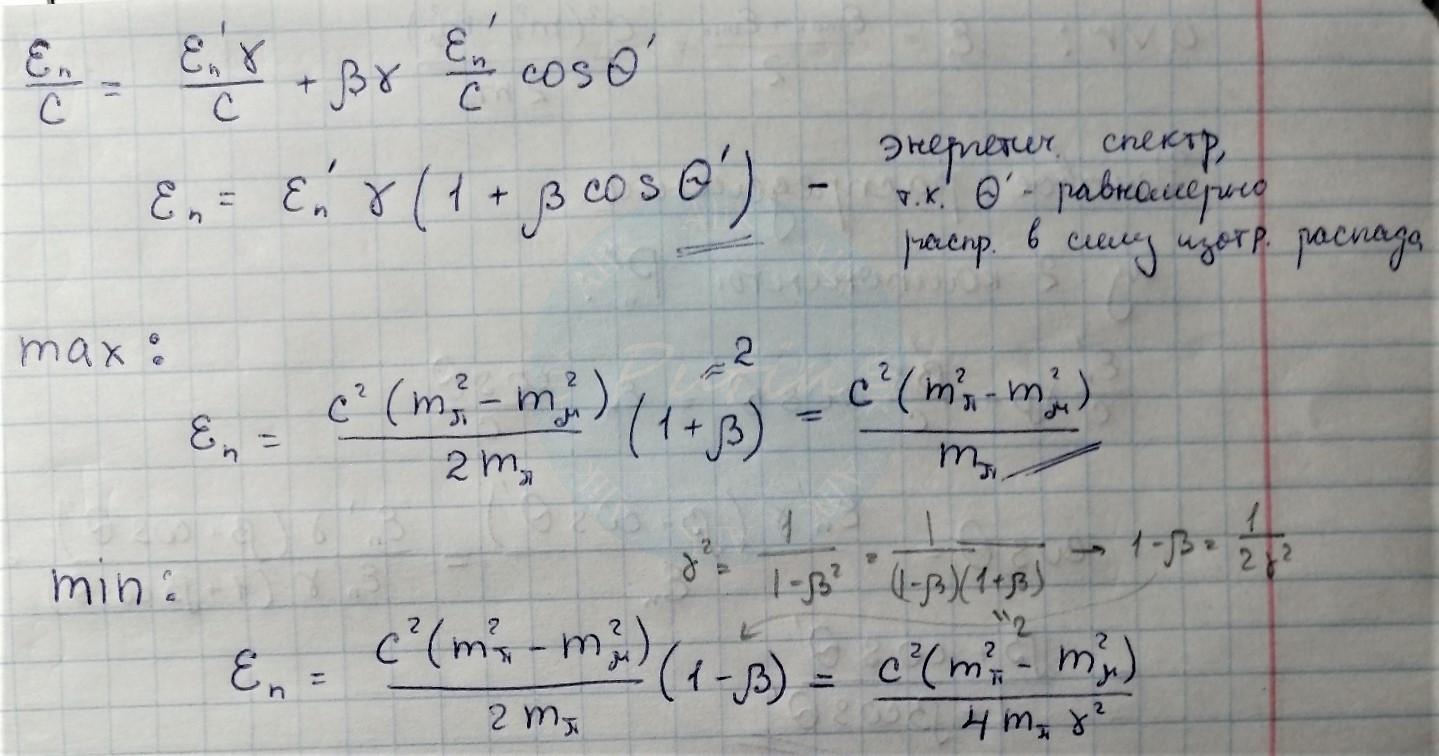 εₙ/c = εₙ'γ/c + βγ εₙ'/c cos θ'
εₙ = εₙ' γ (1 + β cos θ') – энергетич. спектр,
т.к. θ' - равномерно
распр. в силу изотр. распада
max:
εₙ = c²(m²π − m²μ)/2mπ (1+β) = c²(m²π − m²μ)/mπ
≈2
γ² = 1/(1−β²) = 1/((1−β)(1+β)) → 1−β = 1/2γ²
≈2
min:
εₙ = c²(m²π − m²μ)/2mπ (1−β) = c²(m²π − m²μ)/4mπ γ²